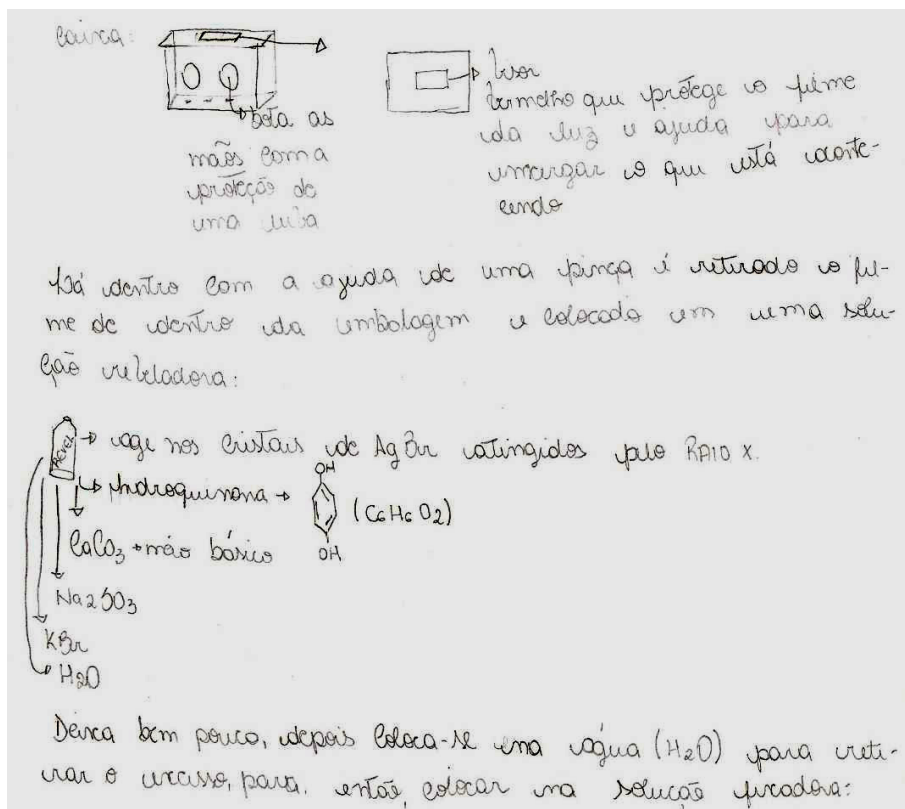 Caixa:
bota as
mãos com a
proteção de
uma luva
Visor
vermelho que protege o filme
da luz e ajuda para
enxergar o que está aconte-
cendo
Lá dentro com a ajuda de uma pinça é retirado o fil-
me de dentro da embalagem e colocado em uma solu-
ção reveladora:
REVEL
age nos cristais de AgBr atingidos pelo RAIO X.
Hidroquinona → OH (C6H6O2)
OH
CaCO3 → meio básico
Na2SO3
KBr
H2O
Deixa bem pouco, depois coloca-se na água (H2O) para reti-
rar o excesso, para, então, colocar na solução fixadora: